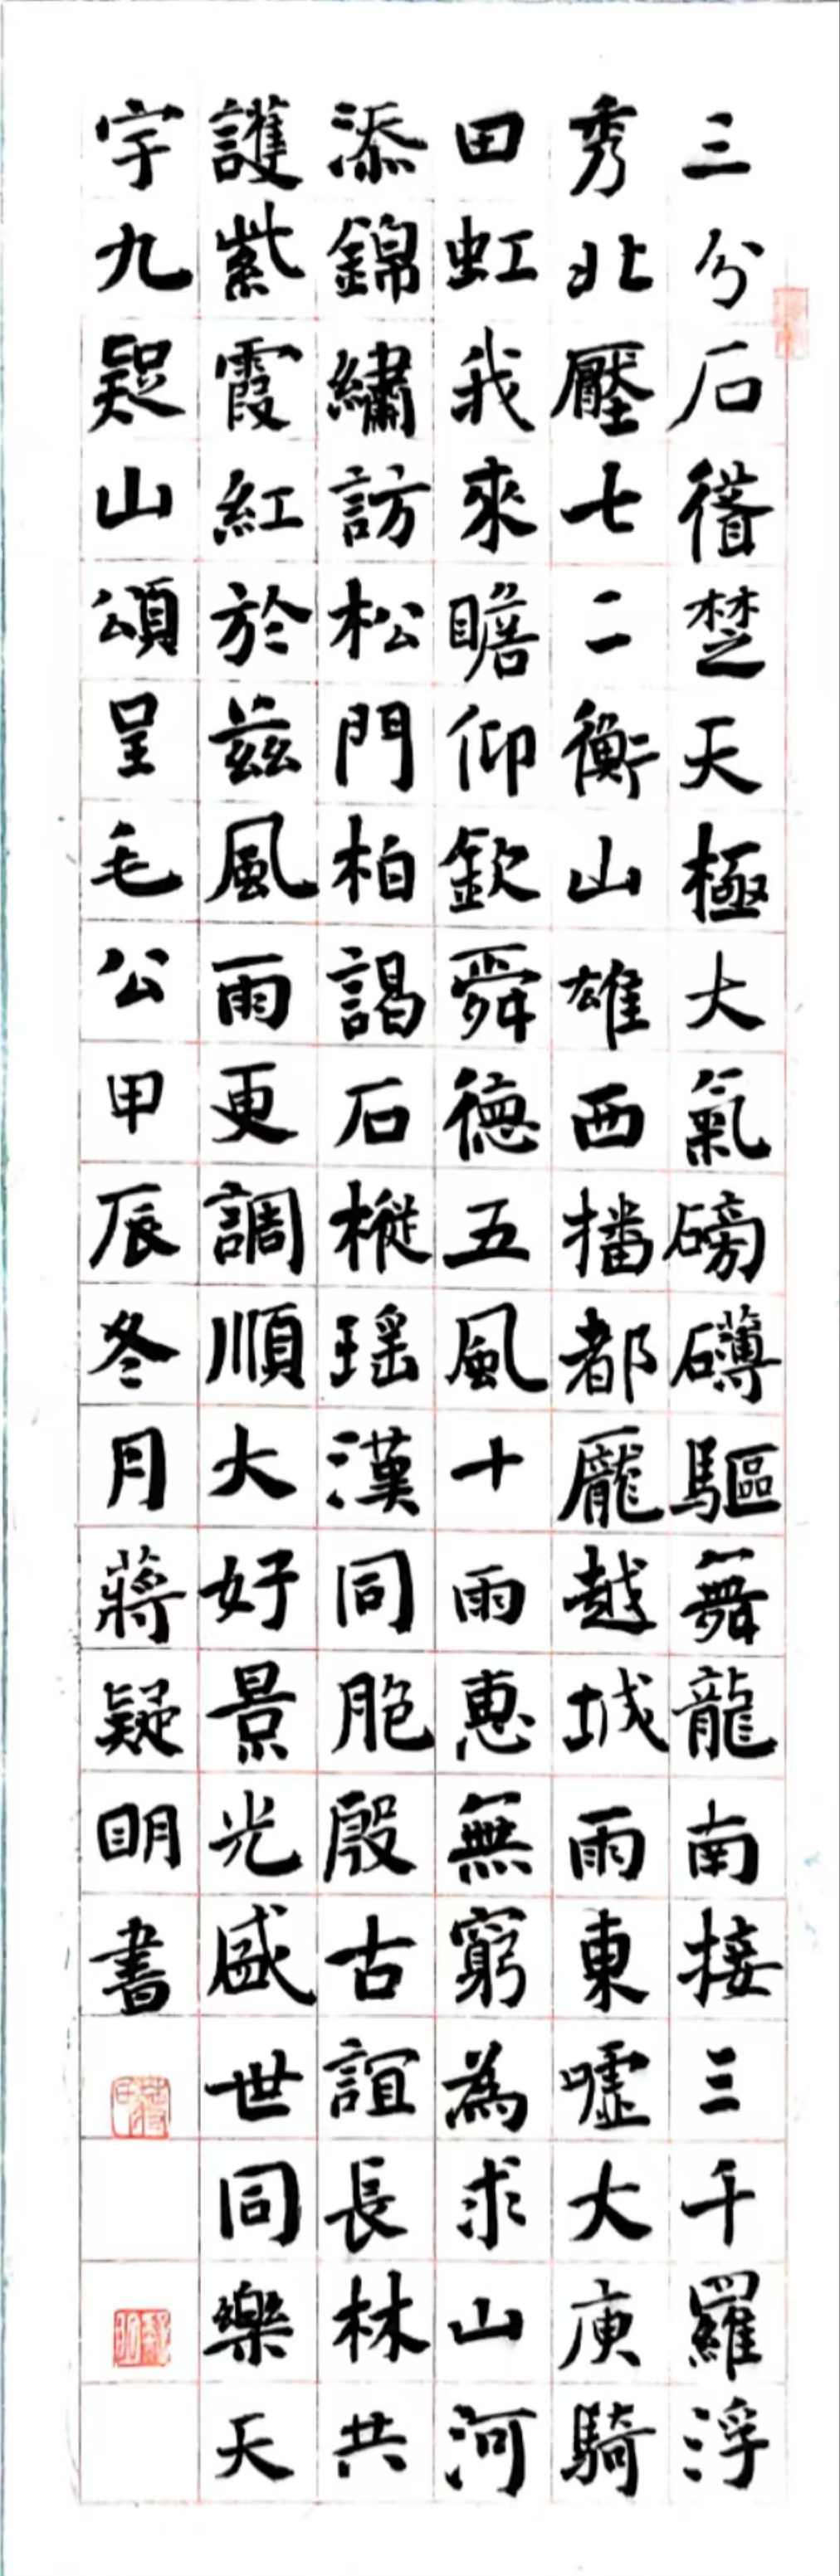 三分石楚天極大氣磅礴驅舞龍南接三千羅浮
秀北壓七二衡山雄西播都龐越城雨東噓大庾騎
田虹我來瞻仰欽舜德五風十雨惠無窮為求山河
添錦繡訪松門柏謁石樅瑤漢同胞殷古誼長林共
護紫霞紅於茲風雨更調順大好景光盛世同樂天
宇九疑山頌呈毛公甲辰冬月蔣疑眀書